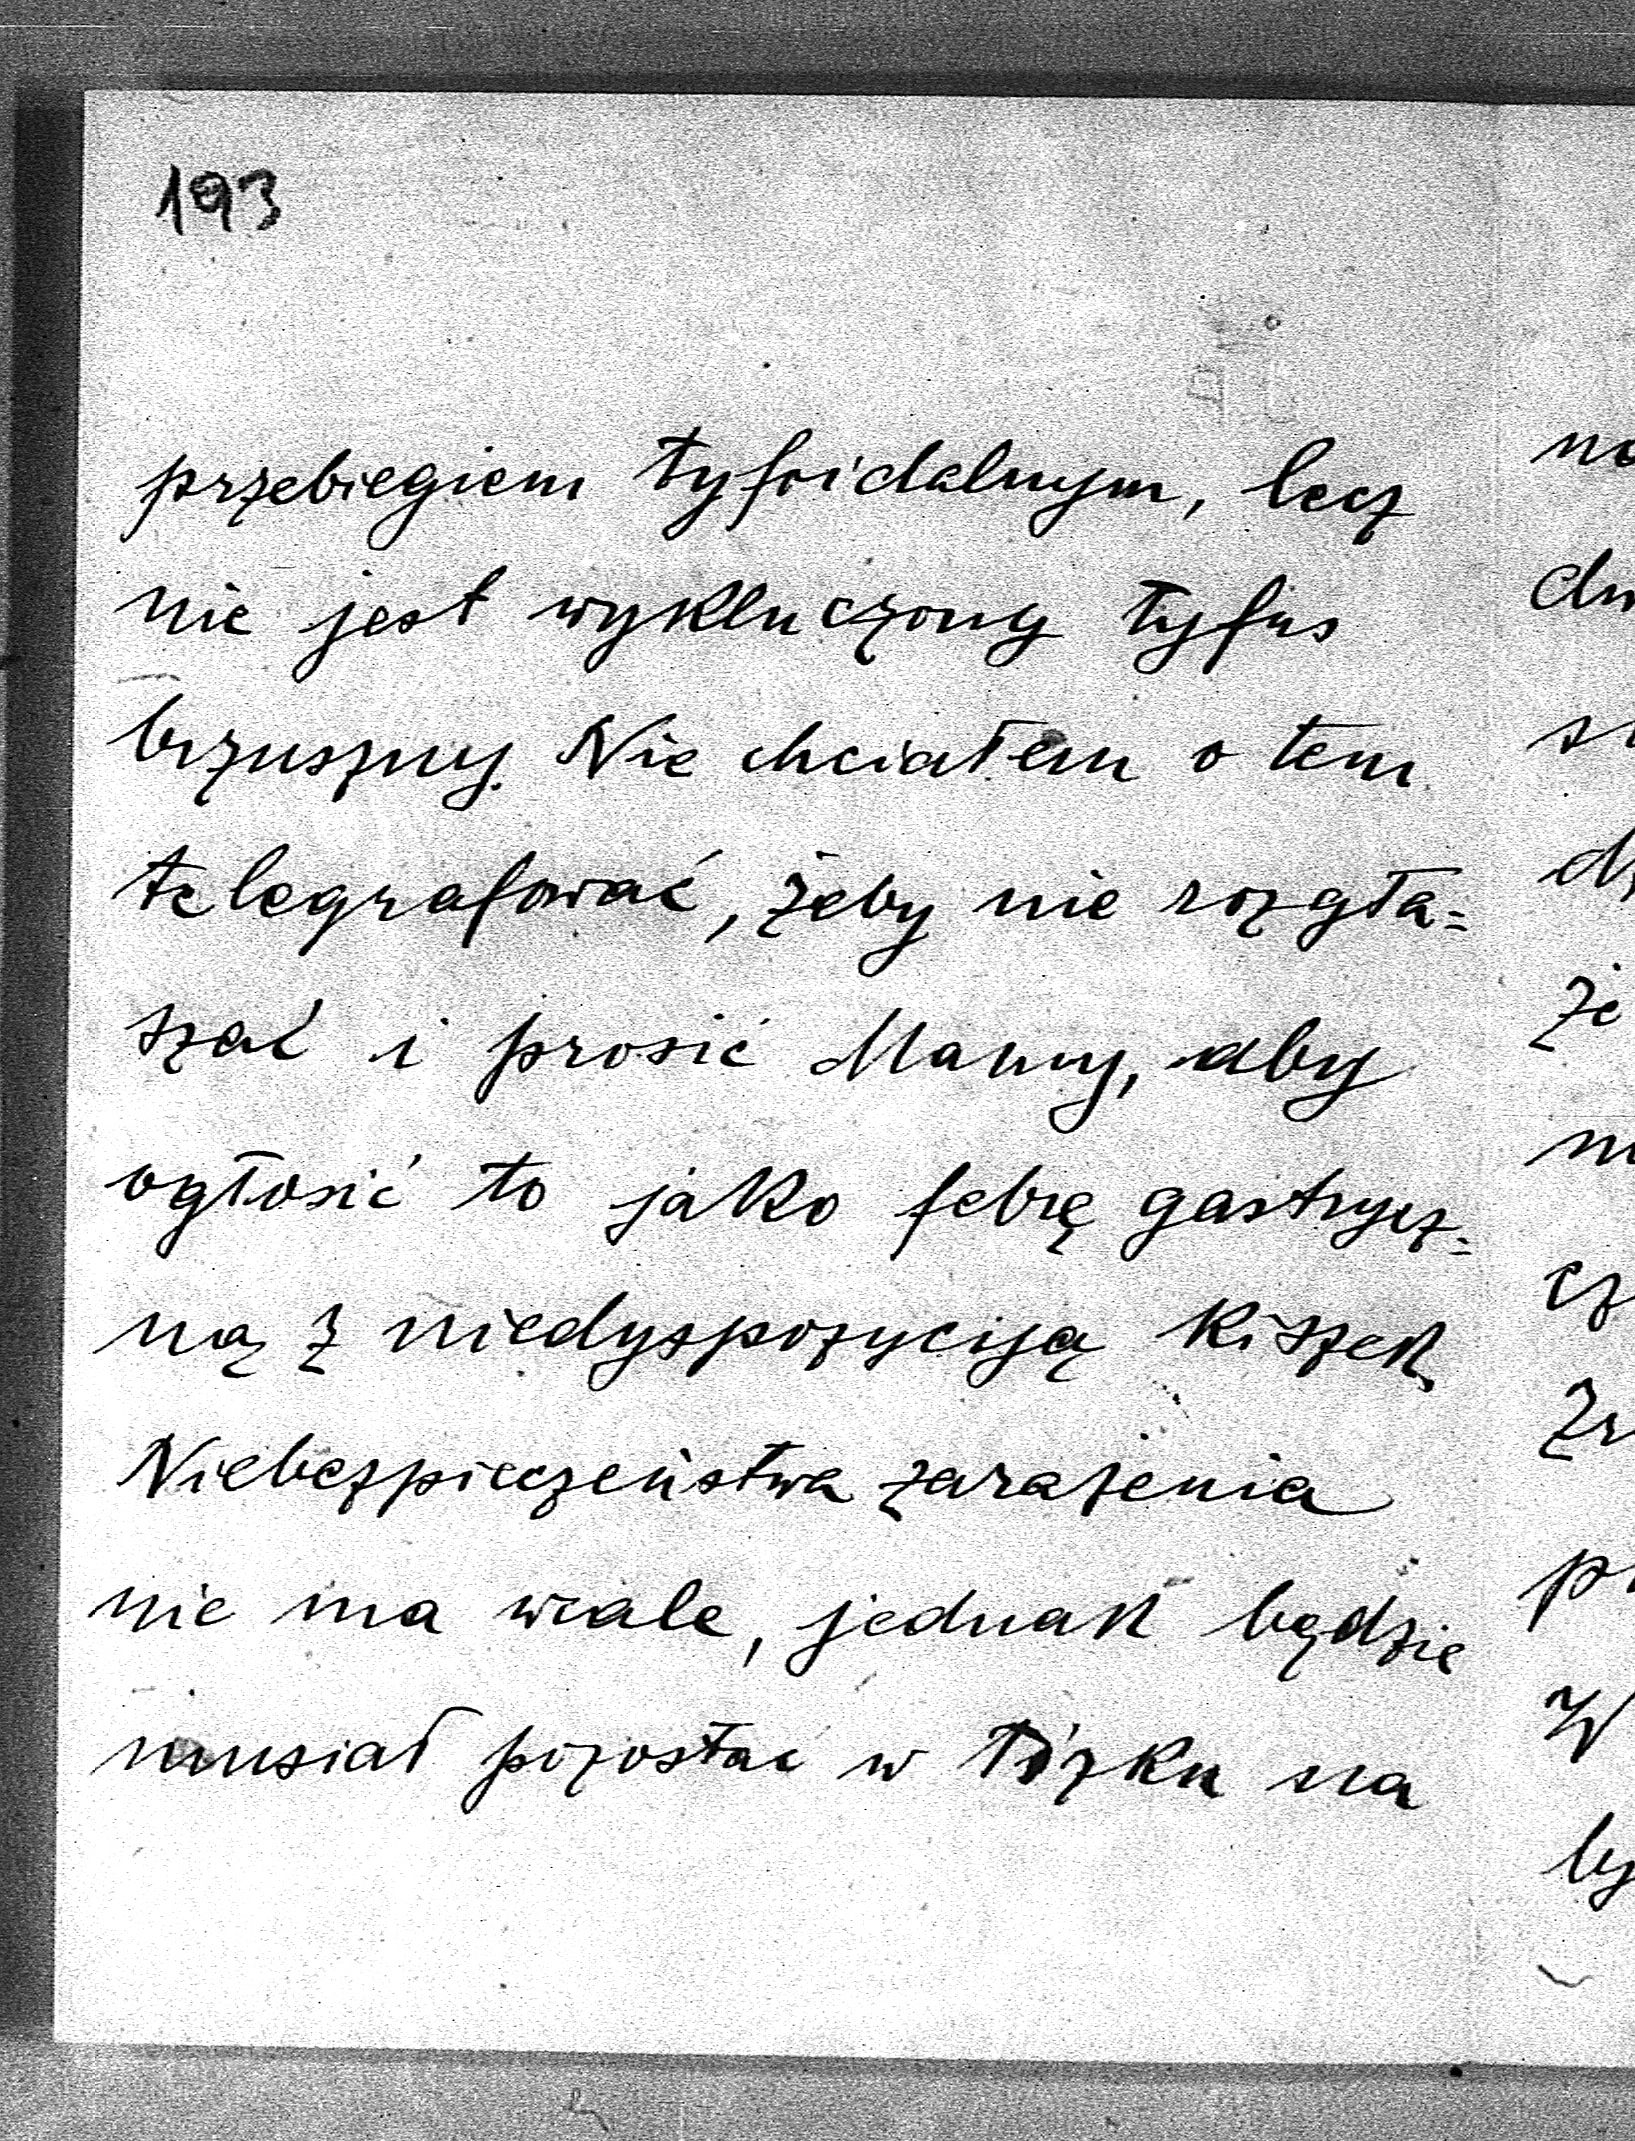 193
przebiegiem tyfoidalnym, lecz
nie jest wykluczony tyfus
brzuszny. Nie chciałem o tem
telegrafować, żeby nie rozgła=
szać i prosić Mamy, aby
ogłosić to jako febrę gastrycz=
ną z niedyspozyciją kiszek.
Niebezpieczeństwa zarażenia
nie ma wcale, jednak będzie
musiał pozostać w łóżku na